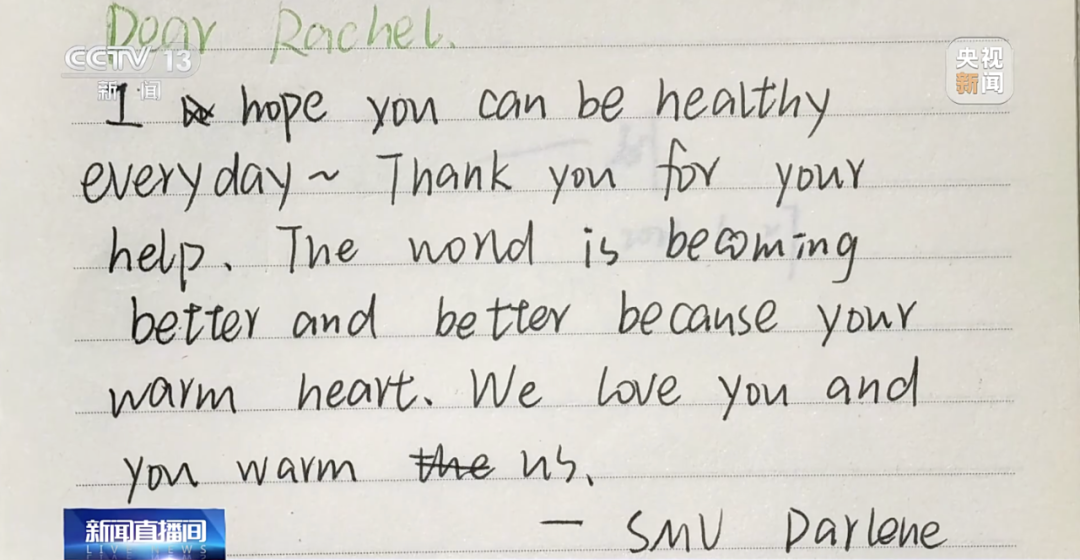 Dear Rachel.
CCTV 13
新闻
央视
新闻
I hope you can be healthy
everyday~ Thank you for your
help. The world is becoming
better and better because your
warm heart. We love you and
you warm the us.
— SMU Darlene
新闻直播间
LIVE NEWS